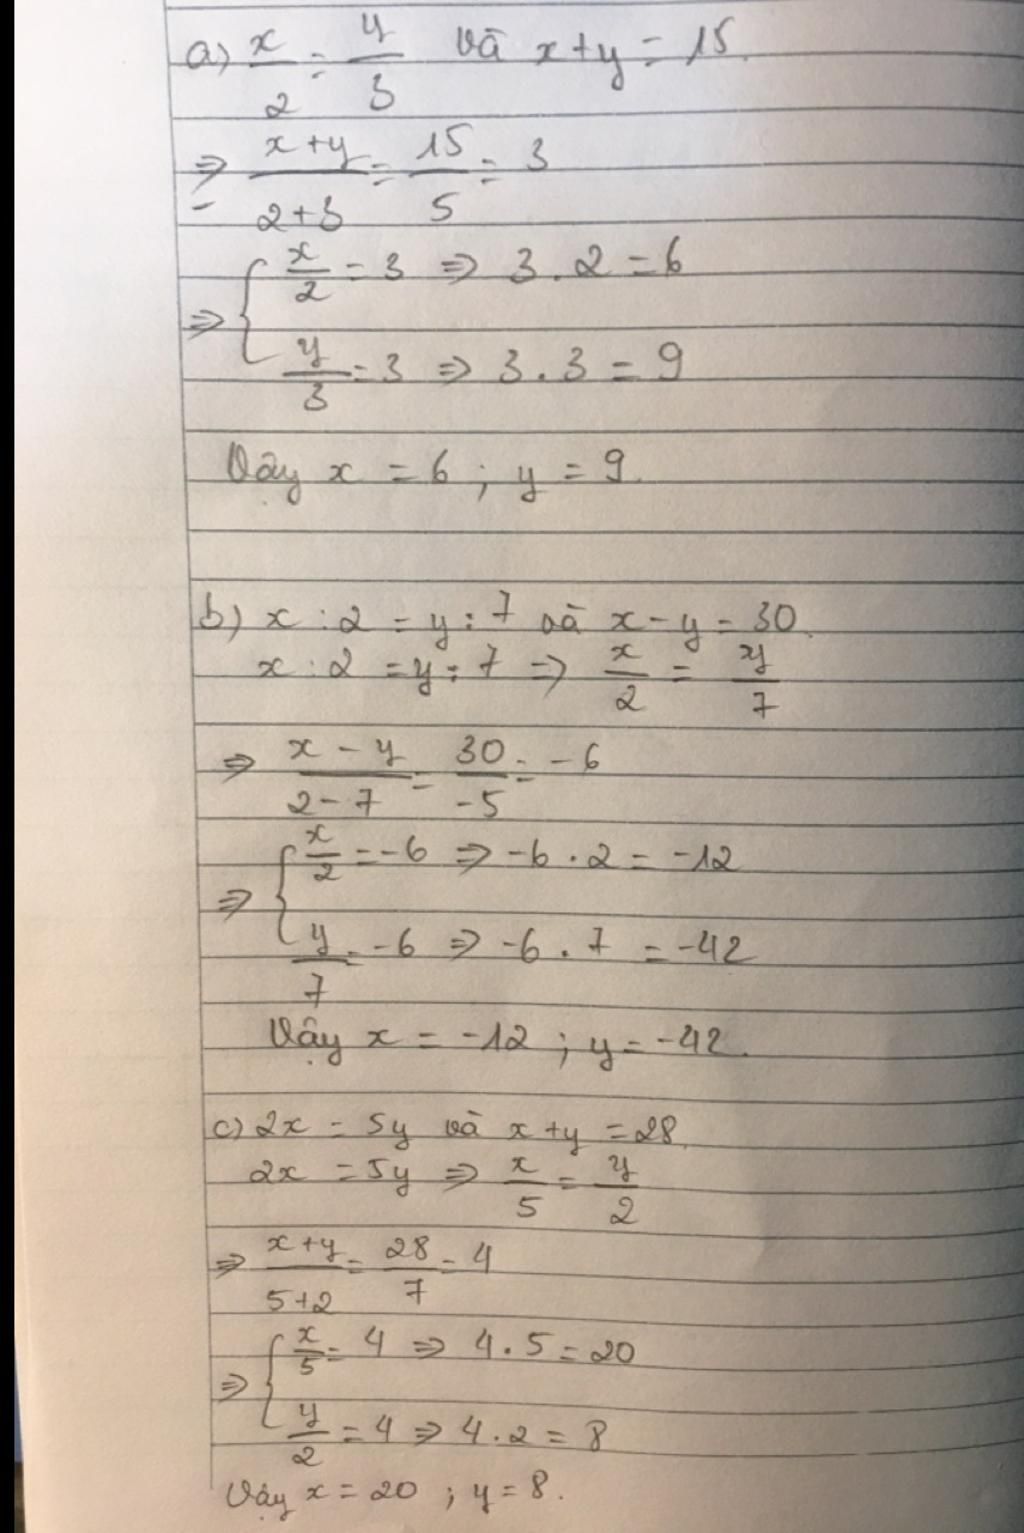 a) x/2 = y/3 và x+y = 15.
=> x+y/2+3 = 15/5 = 3
=> { x/2 = 3 => 3.2 = 6
y/3 = 3 => 3.3 = 9
Vậy x = 6 ; y = 9.
b) x : 2 = y : 7 và x - y = 30.
x : 2 = y : 7 => x/2 = y/7
=> x - y/2 - 7 = 30/-5 = -6
=> { x/2 = -6 => -6 . 2 = -12
y/7 = -6 => -6 . 7 = -42
Vậy x = -12 ; y = -42.
c) 2x = 5y và x+y = 28.
2x = 5y => x/5 = y/2
=> x+y/5+2 = 28/7 = 4
=> { x/5 = 4 => 4.5 = 20
y/2 = 4 => 4.2 = 8
Vậy x = 20 ; y = 8.